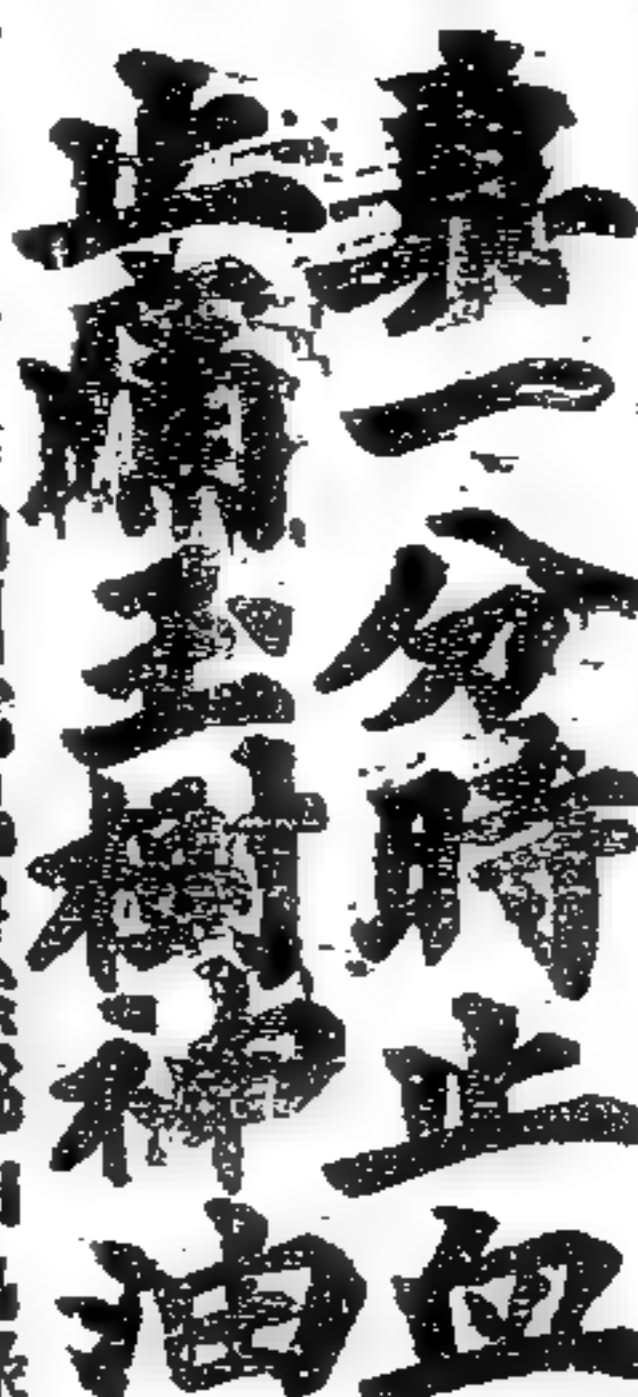 一分時止血
止痛玉樹神油